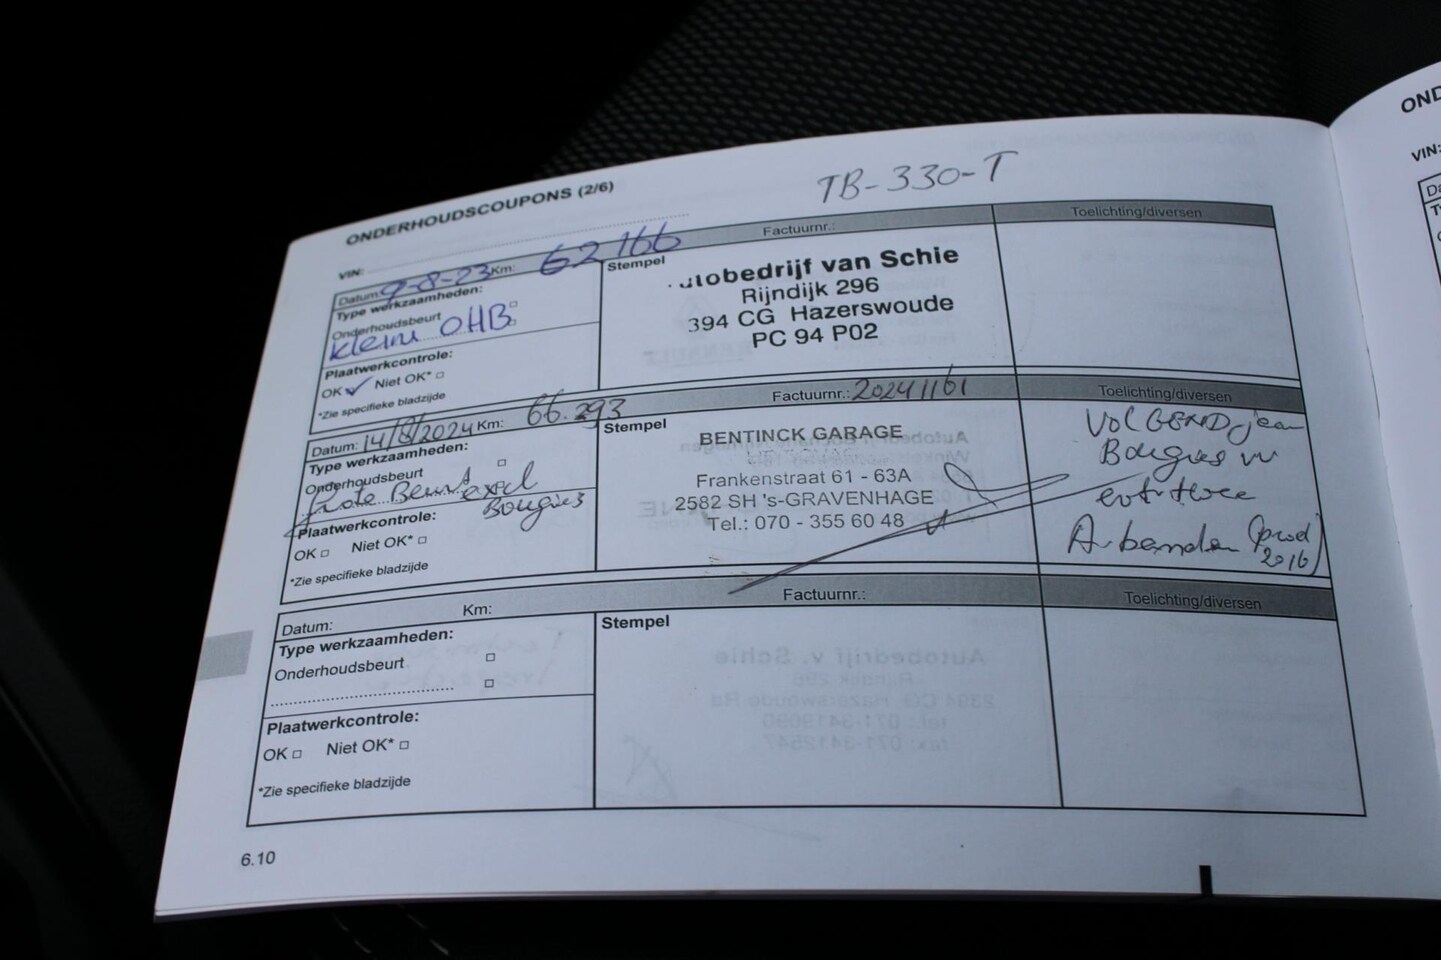 ONDERHOUDSCOUPONS (2/6)
TB-330-T
VIN:
Datum: 9-8-23 Km: 62166 Factuurnr.: Toelichting/diversen
Type werkzaamheden:
Onderhoudsbeurt
kleine OHB
Plaatwerkcontrole:
OK Niet OK*
*Zie specifieke bladzijde
Stempel
utobedrijf van Schie
Rijndijk 296
394 CG Hazerswoude
PC 94 P02
Datum: 14/8/2024 Km: 66.293 Factuurnr.: 20241161 Toelichting/diversen
Type werkzaamheden:
Onderhoudsbeurt
Grote Beurt excl
Bougies
Plaatwerkcontrole:
OK Niet OK*
*Zie specifieke bladzijde
Stempel
BENTINCK GARAGE
Frankenstraat 61 - 63A
2582 SH 's-GRAVENHAGE
Tel.: 070 - 355 60 48
VOLGEND jaar
Bougies
Banden (prod
2016)
Datum: Km: Factuurnr.: Toelichting/diversen
Type werkzaamheden:
Onderhoudsbeurt
Plaatwerkcontrole:
OK Niet OK*
*Zie specifieke bladzijde
Stempel
6.10
OND
VIN: